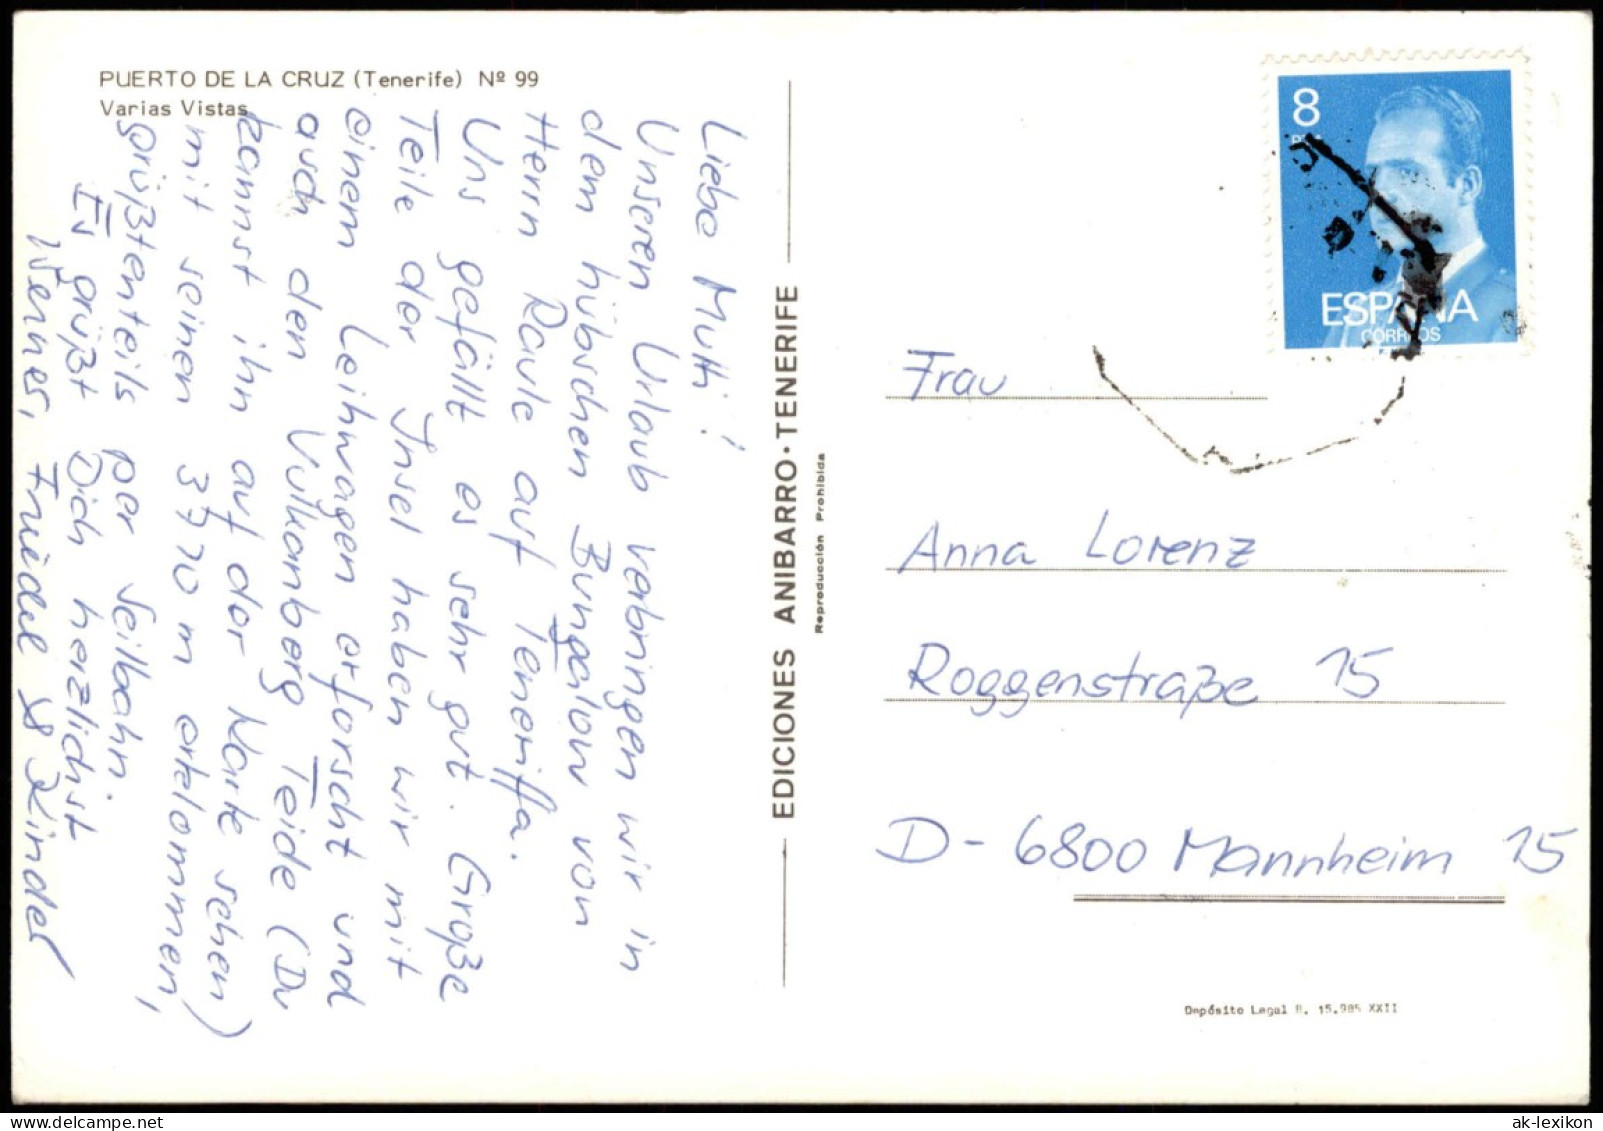 PUERTO DE LA CRUZ (Tenerife) Nº 99
Varias Vistas
Liebe Mutti!
Unseren Urlaub verbringen wir in
dem hübschen Bungalow von
Herrn Raule auf Teneriffa.
Uns gefällt es sehr gut. Große
Teile der Insel haben wir mit
einem Leihwagen erforscht und
auch den Vulkanberg Teide (Du
kannst ihn auf der Karte sehen)
mit seinen 3710 m erklommen,
größtenteils per Seilbahn.
Es grüßt Dich herzlichst
Werner, Friedel & Kinder
EDICIONES ANIBARRO·TENERIFE
Reproducción Prohibida
8
ESPAÑA
CORREOS
Frau
Anna Lorenz
Roggenstraße 15
D-6800 Mannheim 15
Depósito Legal B. 15.985 XXII
ak-lexikon